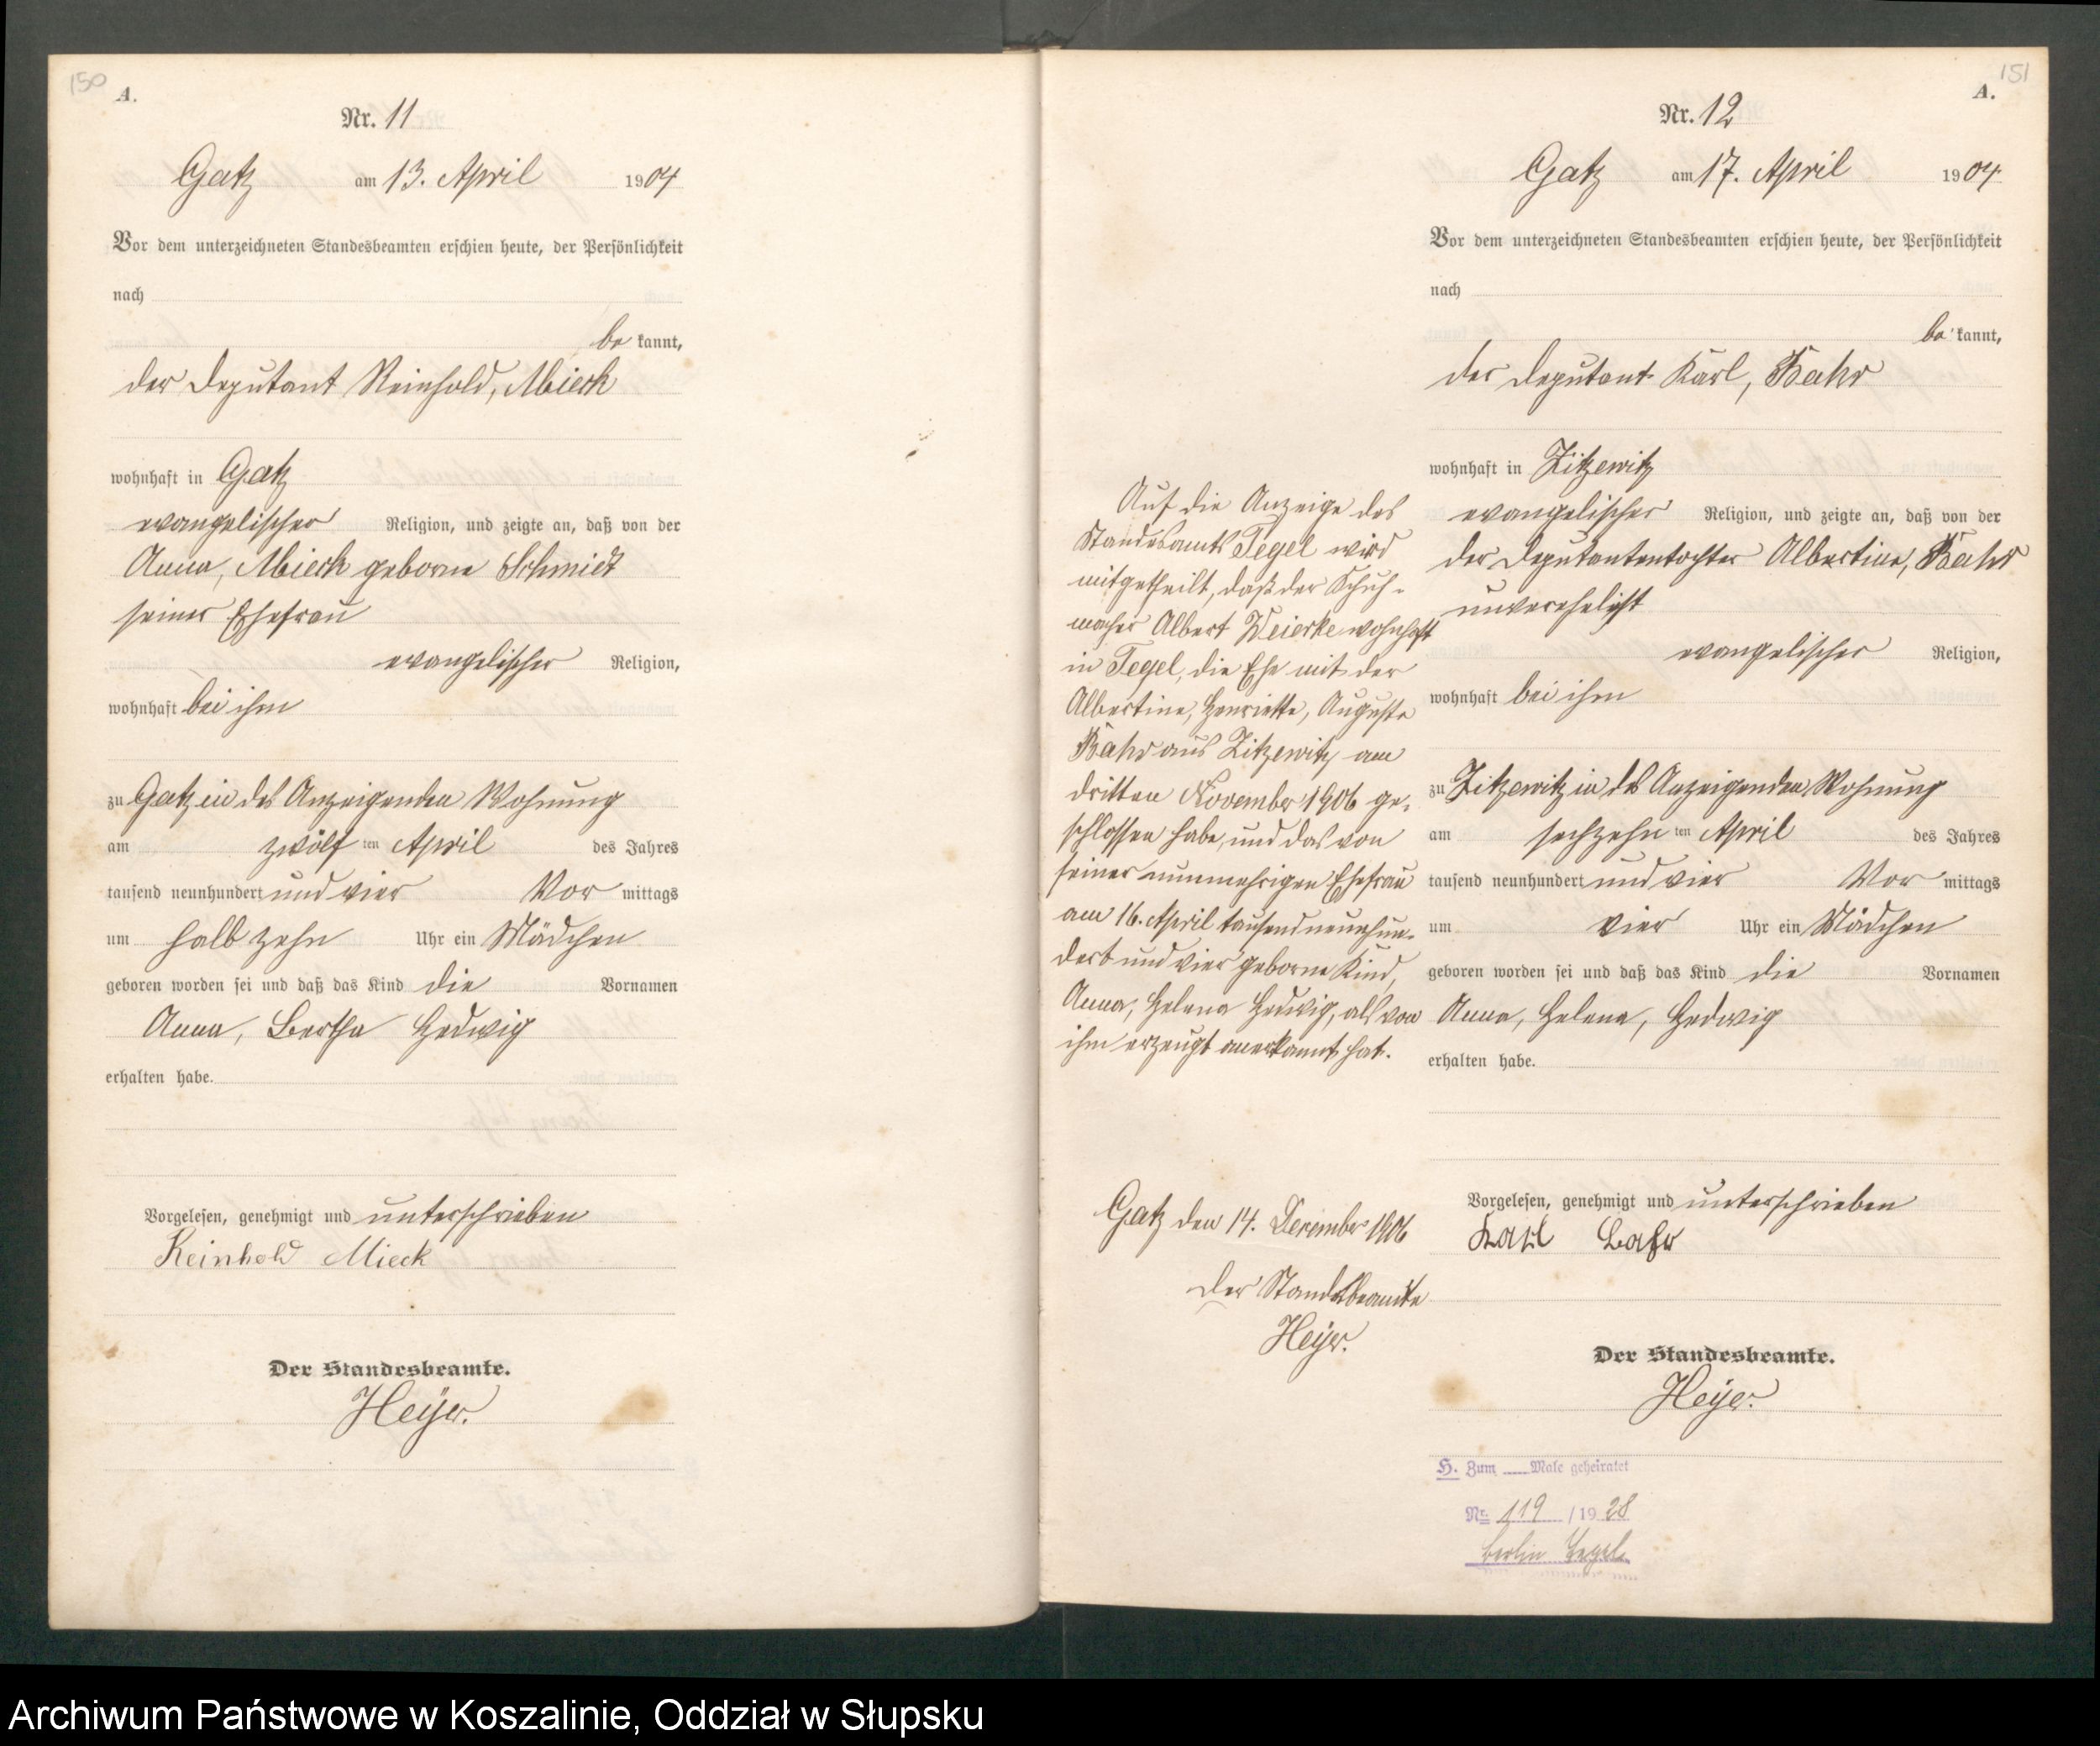 150
A.
Nr. 11
Gatz am 13. April 1904
Vor dem unterzeichneten Standesbeamten erschien heute, der Persönlichkeit
nach
be kannt,
der Deputant Reinhold, Mieck
wohnhaft in Gatz
evangelischer Religion, und zeigte an, daß von der
Anna, Mieck geborne Schmidt
seiner Ehefrau
evangelischer Religion,
wohnhaft bei ihm
zu Gatz in des Anzeigenden Wohnung
am zwölf ten April des Jahres
tausend neunhundert und vier Vor mittags
um halb zehn Uhr ein Mädchen
geboren worden sei und daß das Kind die Vornamen
Anna, Bertha Hedwig
erhalten habe.
Vorgelesen, genehmigt und unterschrieben
Reinhold Mieck
Der Standesbeamte.
Heyer.
151
A.
Nr. 12
Gatz am 17. April 1904
Vor dem unterzeichneten Standesbeamten erschien heute, der Persönlichkeit
nach
be kannt,
der Deputant Karl, Bahr
wohnhaft in Zitzewitz
evangelischer Religion, und zeigte an, daß von der
der Deputantentochter Albertine, Bahr
unverehelicht
evangelischer Religion,
wohnhaft bei ihm
zu Zitzewitz in des Anzeigenden Wohnung
am sechzehn ten April des Jahres
tausend neunhundert und vier Vor mittags
um vier Uhr ein Mädchen
geboren worden sei und daß das Kind die Vornamen
Anna, Helene, Hedwig
erhalten habe.
Vorgelesen, genehmigt und unterschrieben
Karl Bahr
Der Standesbeamte.
Heyer.
Auf die Anzeige des
Standesamts Tegel wird
mitgetheilt, daß der Schuh-
macher Albert Weierke wohnhaft
in Tegel, die Ehe mit der
Albertine, Henriette, Auguste
Bahr aus Zitzewitz am
dritten November 1906 ge-
schlossen habe, und das von
seiner nunmehrigen Ehefrau
am 16. April tausendneunhun-
dert und vier geborne Kind,
Anna, Helene Hedwig, als von
ihm erzeugt anerkannt hat.
Gatz den 14. Dezember 1906
Der Standesbeamte
Heyer.
H. Zum Male geheiratet
Nr. 119 / 19 28
Berlin Tegel
Archiwum Państwowe w Koszalinie, Oddział w Słupsku